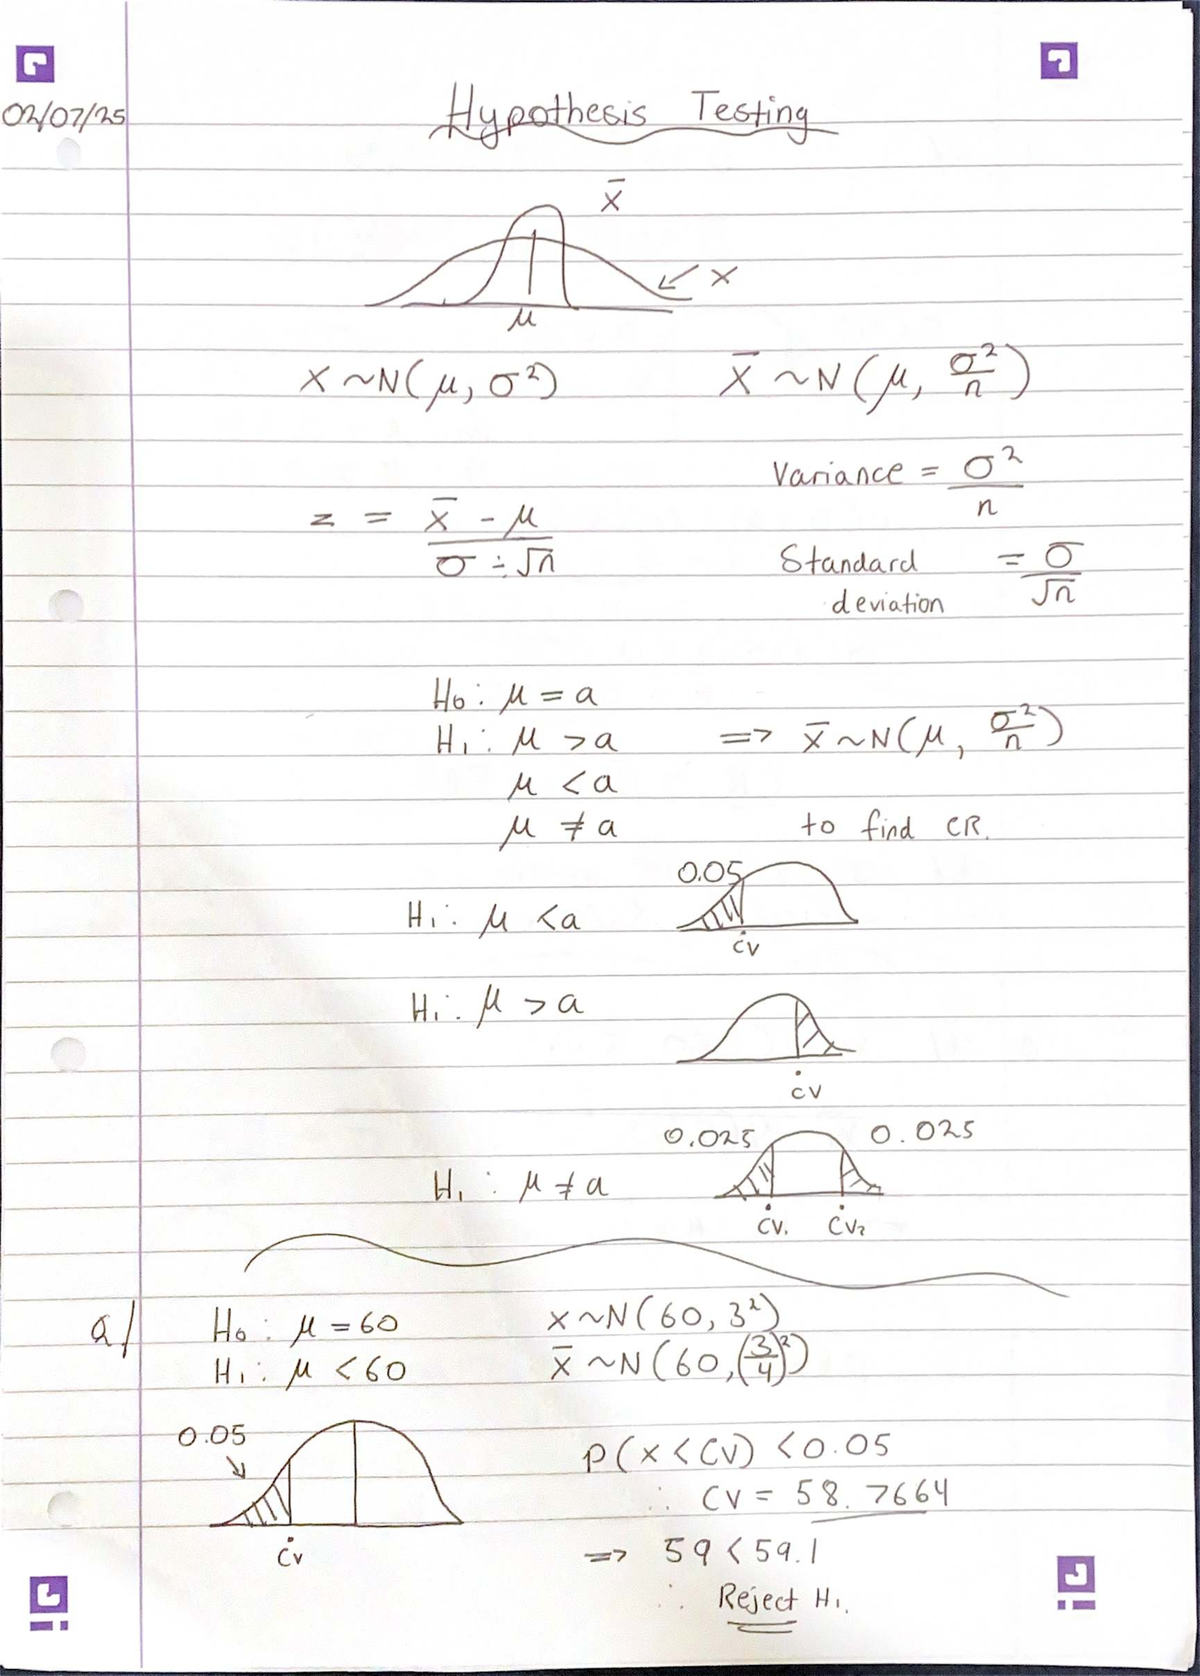 02/07/25
Hypothesis Testing
x̄
x
μ
X ~N(μ, σ²) X̄ ~N(μ, σ²/n)
Variance = σ²/n
z = x̄ - μ / σ ÷ √n
Standard deviation = σ/√n
H₀: μ = a
H₁: μ > a => x̄ ~N(μ, σ²/n)
μ < a
μ ≠ a to find CR.
0.05
H₁: μ < a
CV
H₁: μ > a
CV
0.025 0.025
H₁: μ ≠ a
CV₁ CV₂
a/ H₀: μ = 60 x ~N(60, 3²)
H₁: μ < 60 x̄ ~N(60, (3/4)²)
0.05
P(x < CV) < 0.05
∴ CV = 58.7664
CV
=> 59 < 59.1
∴ Reject H₁.